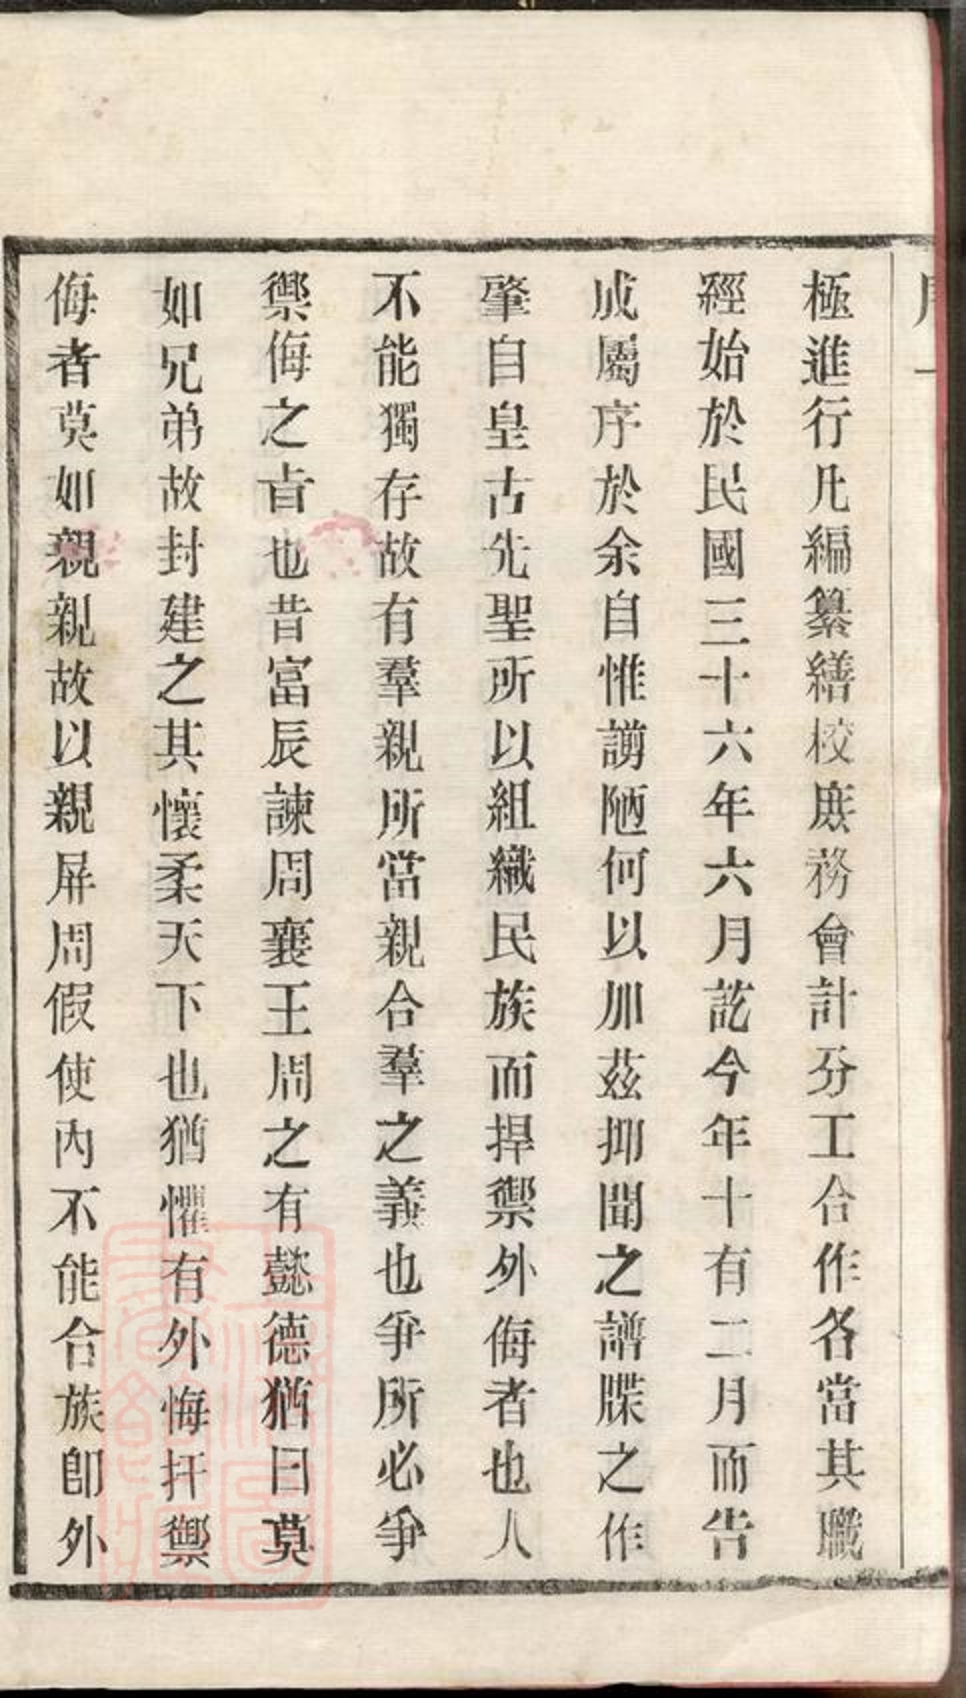 極進行凡編纂繕校庶務會計分工合作各當其職
經始於民國三十六年六月訖今年十有二月而告
成屬序於余自惟謭陋何以加茲抑聞之譜牒之作
肇自皇古先聖所以組織民族而捍禦外侮者也人
不能獨存故有羣親所當親合羣之義也爭所必爭
禦侮之旨也昔富辰諫周襄王周之有懿德猶曰莫
如兄弟故封建之其懷柔天下也猶懼有外悔扞禦
侮者莫如親親故以親屏周假使內不能合族卽外